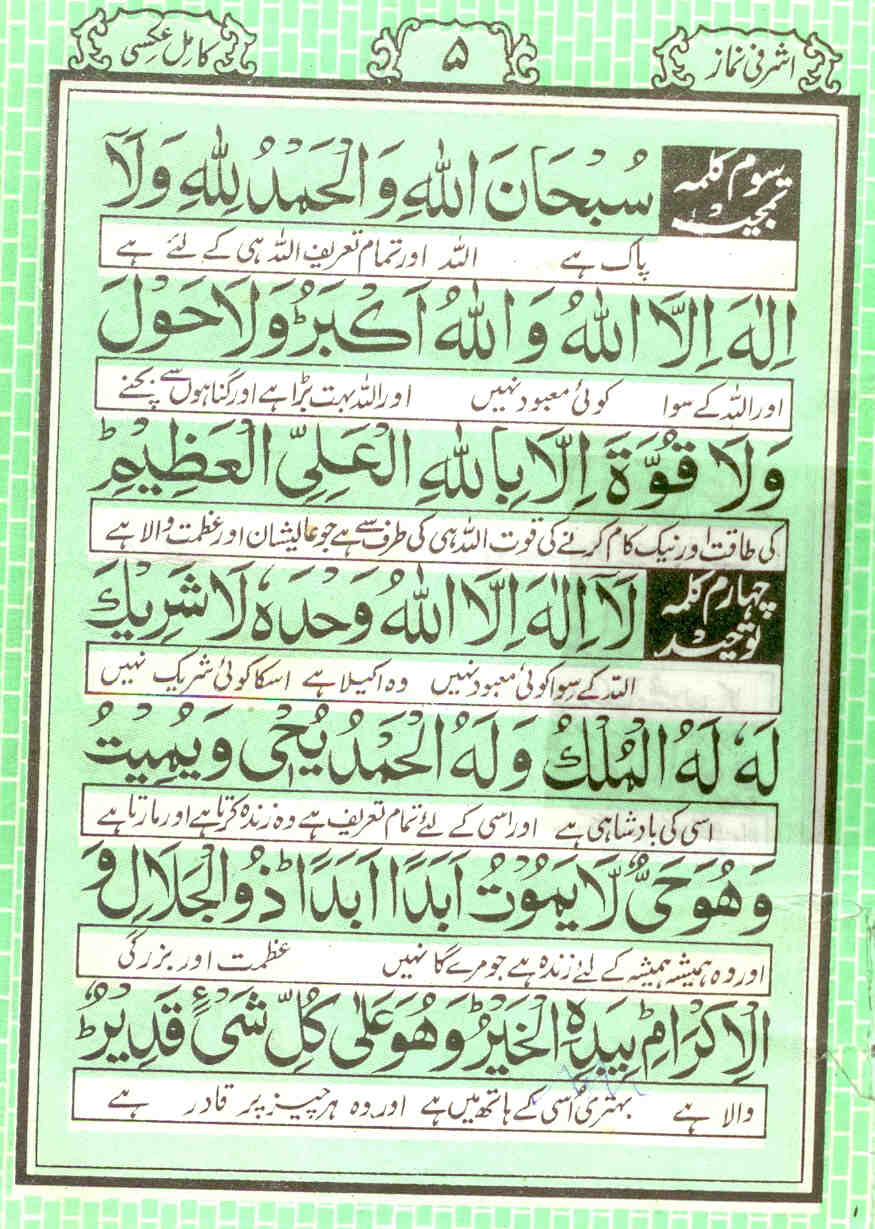 اشرفی نماز
۵
کامل عکسی
سوم کلمہ تمجید
سُبْحَانَ اللهِ وَالْحَمْدُ لِلّٰهِ وَلَآ
پاک ہے اللہ اور تمام تعریف اللہ ہی کے لئے ہے
اِلٰهَ اِلَّا اللهُ وَاللهُ اَكْبَرُ ؕ وَلَا حَوْلَ
اور اللہ کے سوا کوئی معبود نہیں اور اللہ بہت بڑا ہے اور گناہوں سے بچنے
وَلَا قُوَّةَ اِلَّا بِاللهِ الْعَلِيِّ الْعَظِيْمِ ؕ
کی طاقت اور نیک کام کرنے کی قوت اللہ ہی کی طرف سے ہے جو عالیشان اور عظمت والا ہے
چہارم کلمہ توحید
لَآ اِلٰهَ اِلَّا اللهُ وَحْدَهٗ لَا شَرِيْكَ
اللہ کے سوا کوئی معبود نہیں وہ اکیلا ہے اسکا کوئی شریک نہیں
لَهٗ لَهُ الْمُلْكُ وَلَهُ الْحَمْدُ يُحْيٖ وَيُمِيْتُ
اسی کی بادشاہی ہے اور اسی کے لئے تمام تعریف ہے وہ زندہ کرتا ہے اور مارتا ہے
وَهُوَ حَيٌّ لَّا يَمُوْتُ اَبَدًا اَبَدًا ؕ ذُو الْجَلَالِ وَ
اور وہ ہمیشہ ہمیشہ کے لئے زندہ ہے جو مرے گا نہیں عظمت اور بزرگی
الْاِكْرَامِ ؕ بِيَدِهِ الْخَيْرُ ؕ وَهُوَ عَلٰى كُلِّ شَیْءٍ قَدِيْرٌ ؕ
والا ہے بہتری اُسی کے ہاتھ میں ہے اور وہ ہر چیز پر قادر ہے